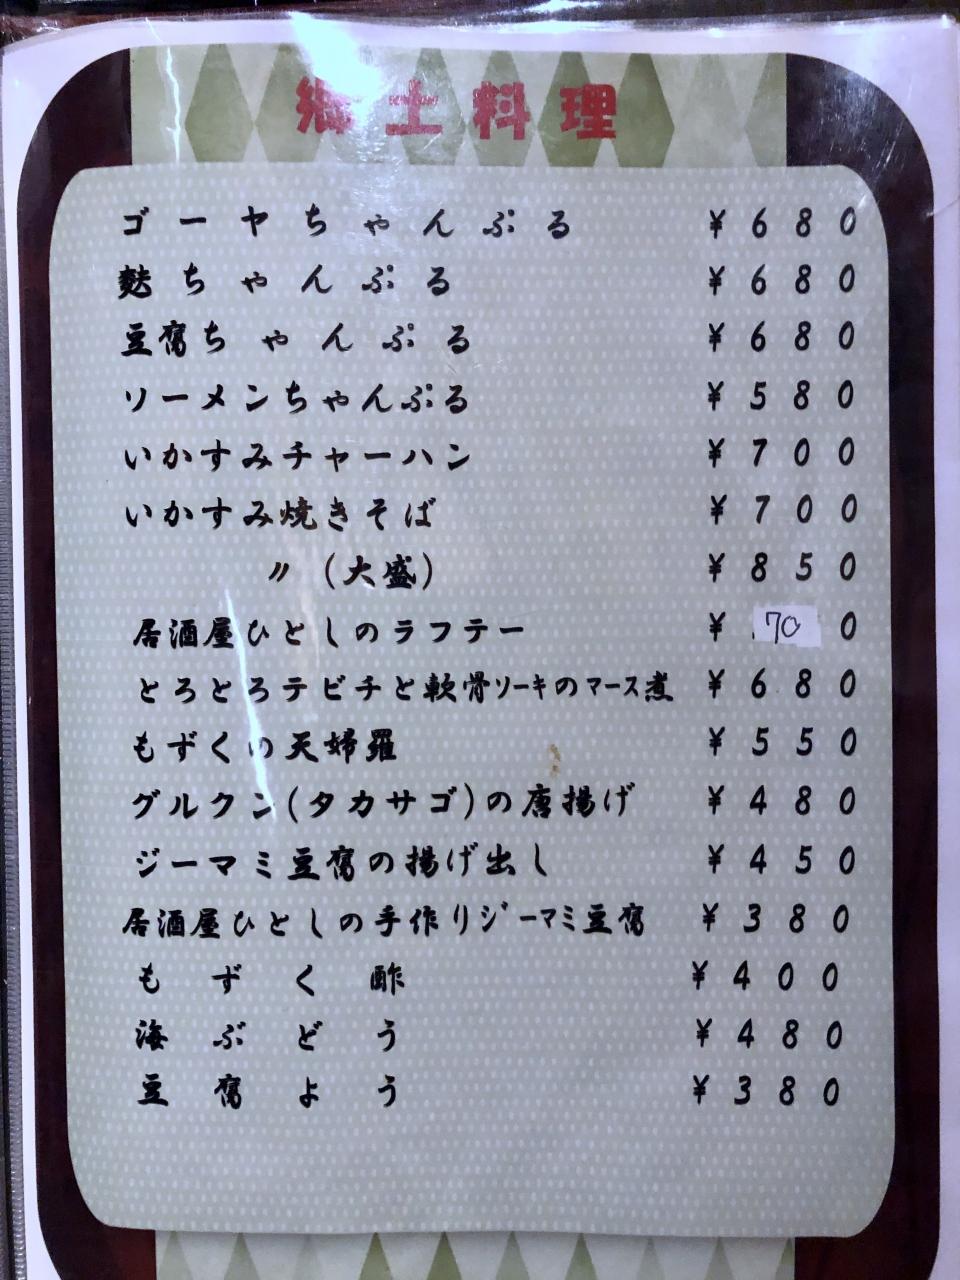 郷土料理
ゴーヤちゃんぷる ¥680
麩ちゃんぷる ¥680
豆腐ちゃんぷる ¥680
ソーメンちゃんぷる ¥580
いかすみチャーハン ¥700
いかすみ焼きそば ¥700
〃（大盛） ¥850
居酒屋ひとしのラフテー ¥700
とろとろテビチと軟骨ソーキのマース煮 ¥680
もずくの天婦羅 ¥550
グルクン(タカサゴ)の唐揚げ ¥480
ジーマミ豆腐の揚げ出し ¥450
居酒屋ひとしの手作りジーマミ豆腐 ¥380
もずく酢 ¥400
海ぶどう ¥480
豆腐よう ¥380